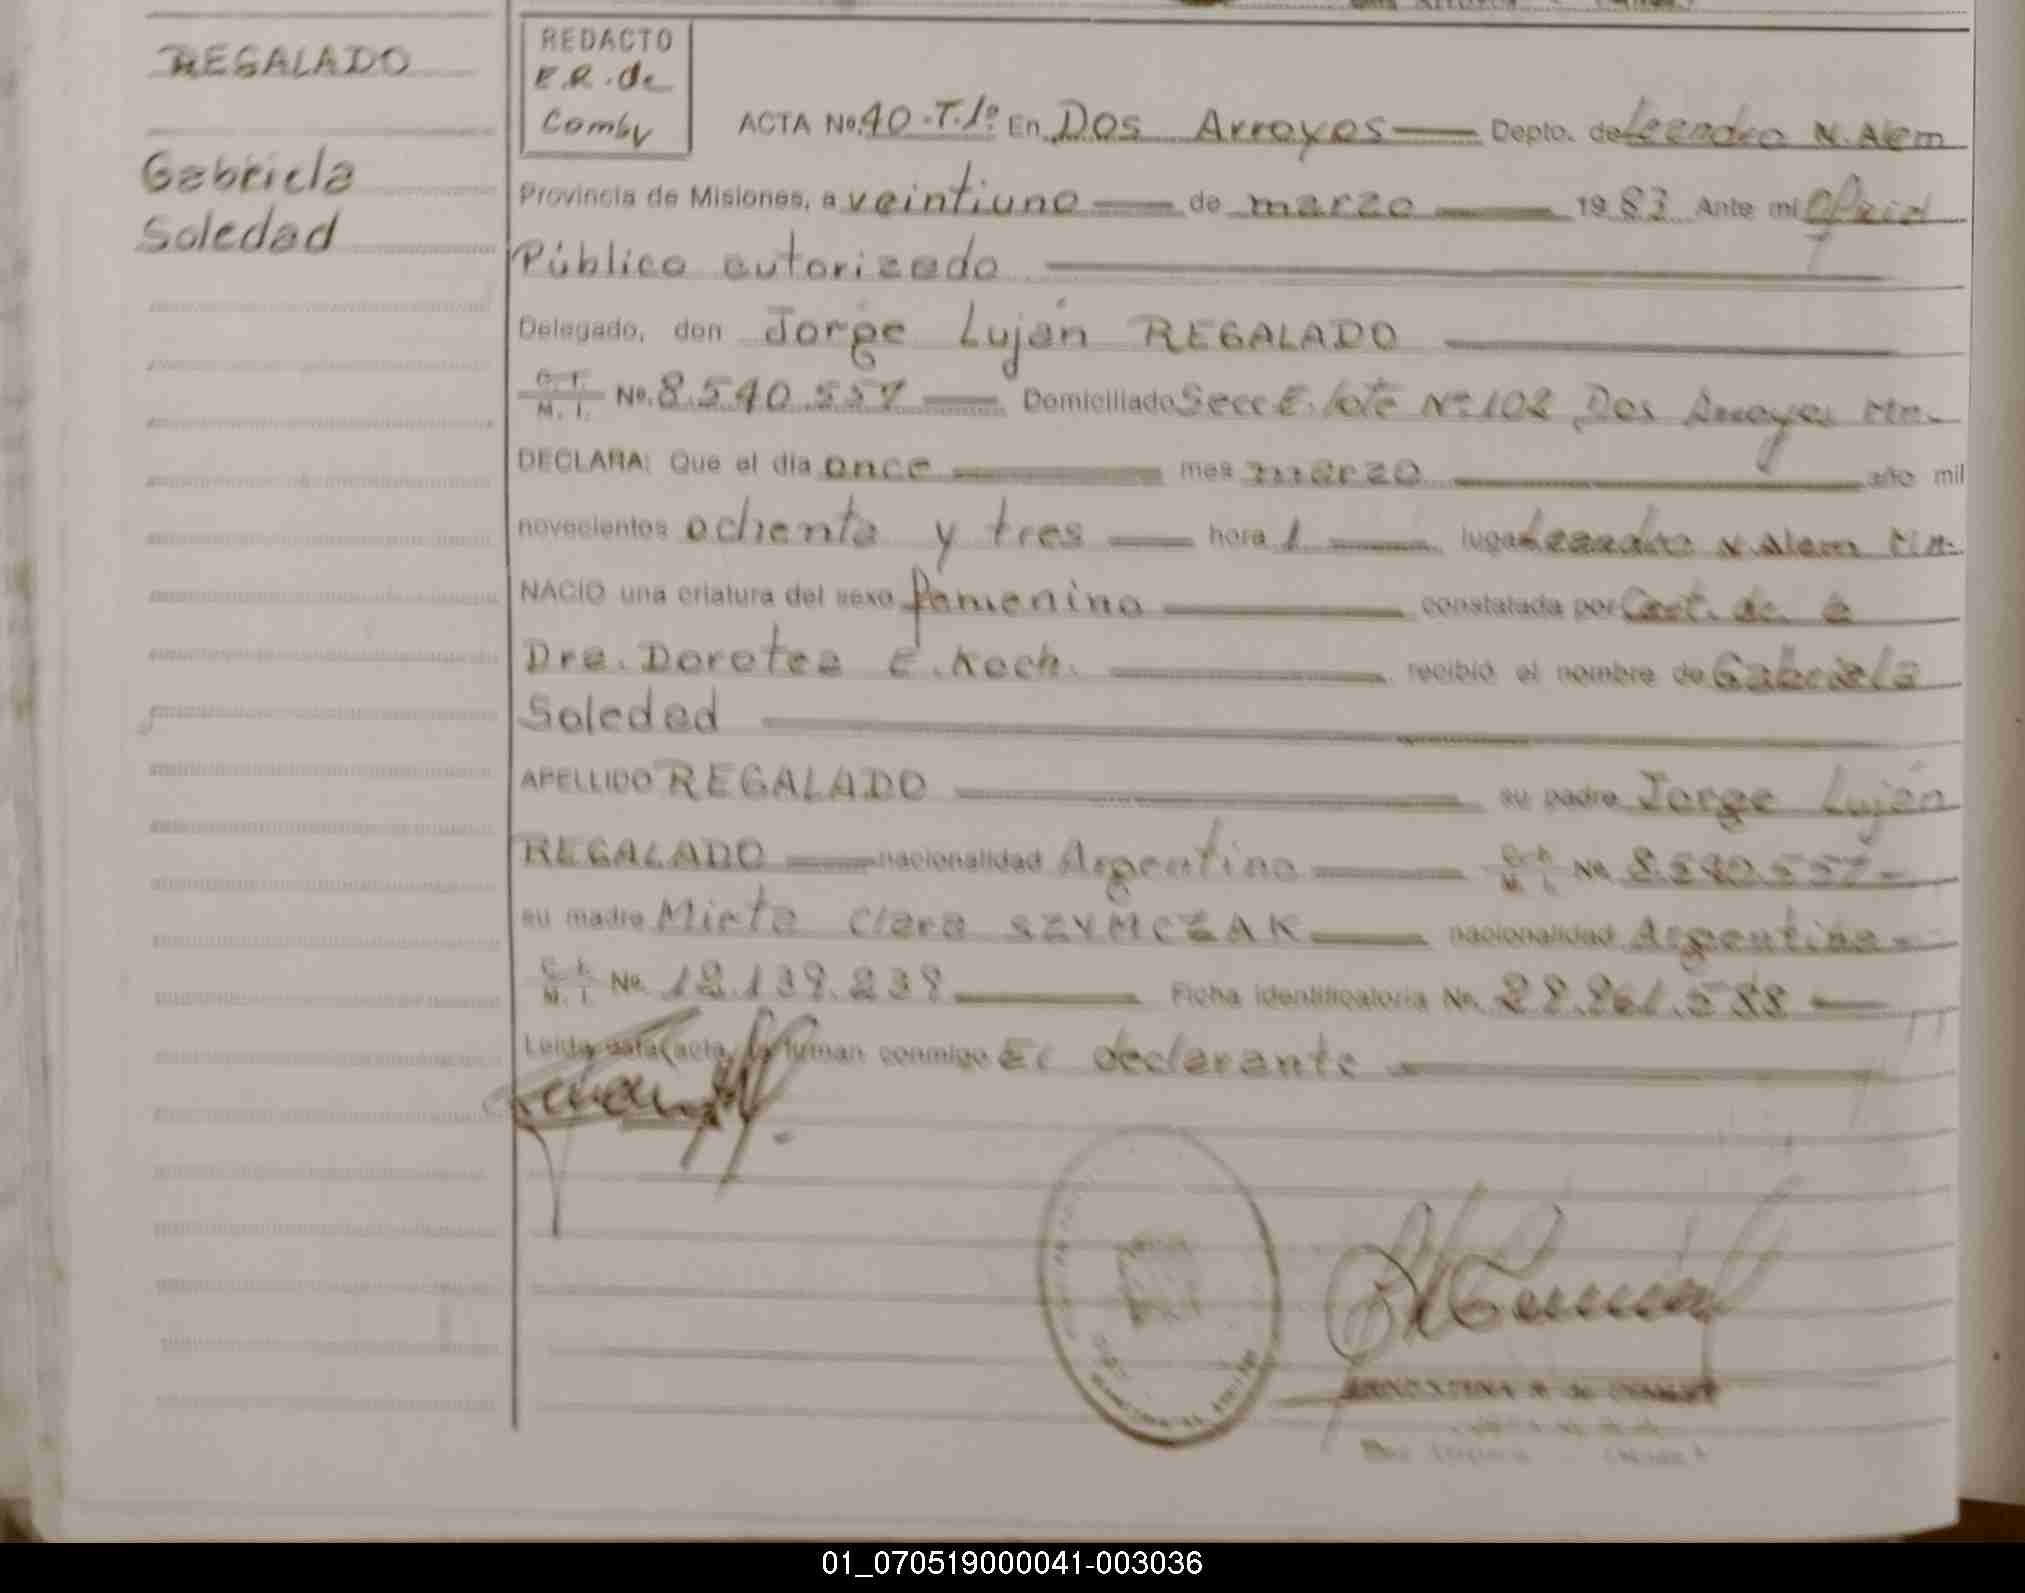 RESALADO
Gabriela
Soledad
REDACTO
E.R. de
Comby
ACTA No. 40.T.1º. En Dos Arroyos Depto. de Leandro N. Alem
Provincia de Misiones, a veintiuno de marzo 1983 Ante mi Oficial
Público autorizado
Delegado, don Jorge Luján REGALADO
C. I. M. I. No. 8.540.557 Domiciliado Secc E. lote Nº 102 Dos Arroyos Mn.
DECLARA: Que el día once mes marzo año mil
novecientos ochenta y tres hora 1 lugar Leandro N. Alem Mn.
NACIO una criatura del sexo femenino constatada por Cert. de la
Dra. Dorotea E. Koch. recibió el nombre de Gabriela
Soledad
APELLIDO REGALADO su padre Jorge Luján
REGALADO nacionalidad Argentino C. I. M. I. No. 8.540.557
su madre Mirta Clara SZYMCZAK nacionalidad Argentina
C. I. M. I. No. Ficha identificatoria No.
Leída esta acta, la firman conmigo El declarante
01_070519000041-003036